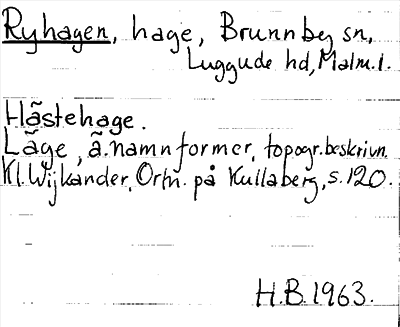 Ryhagen, hage, Brunnby sn,
Luggude hd, Malm.l.
Hästehage.
Läge, ä.namnformer, topogr.beskrivn.
Kl.Wijkander, Ortn. på Kullaberg, s.120.
H.B.1963.